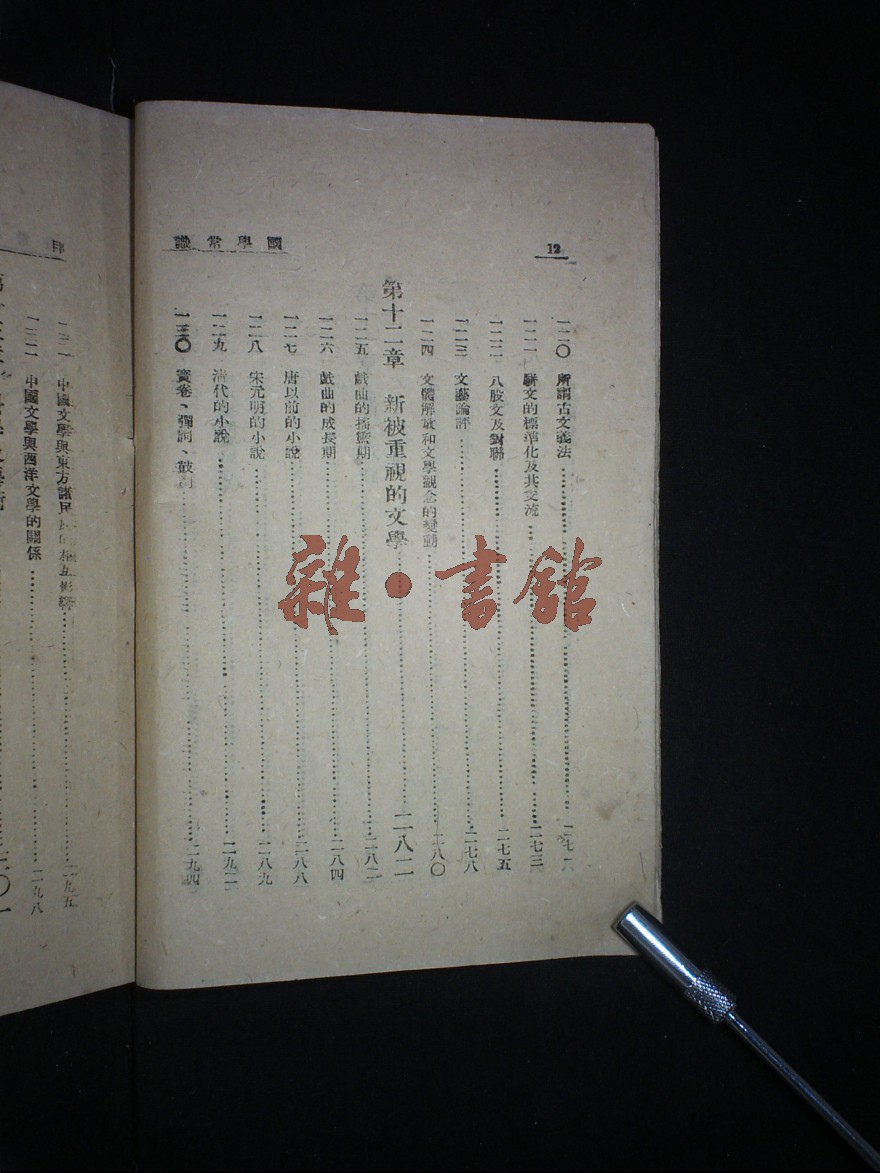 12
國學常識
一二〇 所謂古文義法
一二一 駢文的標準化及其交流 二七三
一二二 八股文及對聯 二七五
一二三 文藝論評 二七八
一二四 文體解放和文學觀念的變動 二八〇
第十二章 新被重視的文學 二八二
一二五 戲曲的搖籃期 二八二
一二六 戲曲的成長期 二八四
一二七 唐以前的小說 二八八
一二八 宋元明的小說 二八九
一二九 清代的小說 二九二
一三〇 寶卷、彈詞、鼓詞 二九四
目
中國文學與東方諸民族的相互影響 二九五
一三二 中國文學與西洋文學的關係 二九八
雜·書館